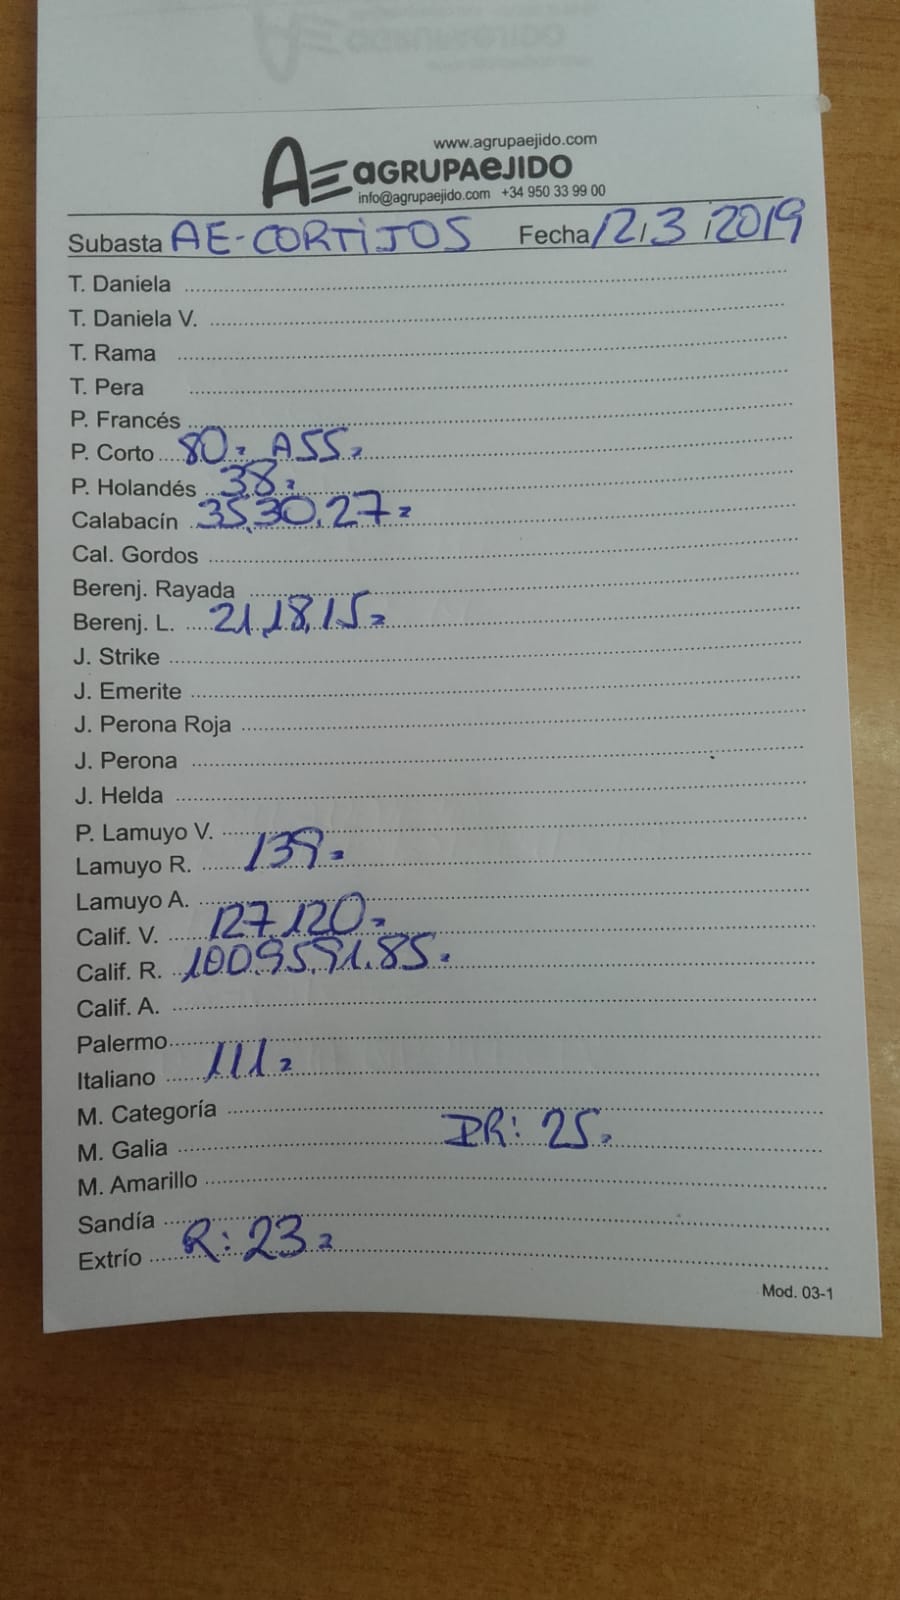 www.agrupaejido.com
AE aGRUPAeJIDO
info@agrupaejido.com +34 950 33 99 00
Subasta AE-CORTIJOS Fecha 12/3/2019
T. Daniela
T. Daniela V.
T. Rama
T. Pera
P. Francés
P. Corto 80= ASS=
P. Holandés 38=
Calabacín 35,30,27=
Cal. Gordos
Berenj. Rayada
Berenj. L. 21,18,15=
J. Strike
J. Emerite
J. Perona Roja
J. Perona
J. Helda
P. Lamuyo V.
Lamuyo R. 139=
Lamuyo A.
Calif. V. 127,120=
Calif. R. 100,95,91,85=
Calif. A.
Palermo
Italiano 111=
M. Categoría
M. Galia DR: 25=
M. Amarillo
Sandía
Extrío R: 23=
Mod. 03-1